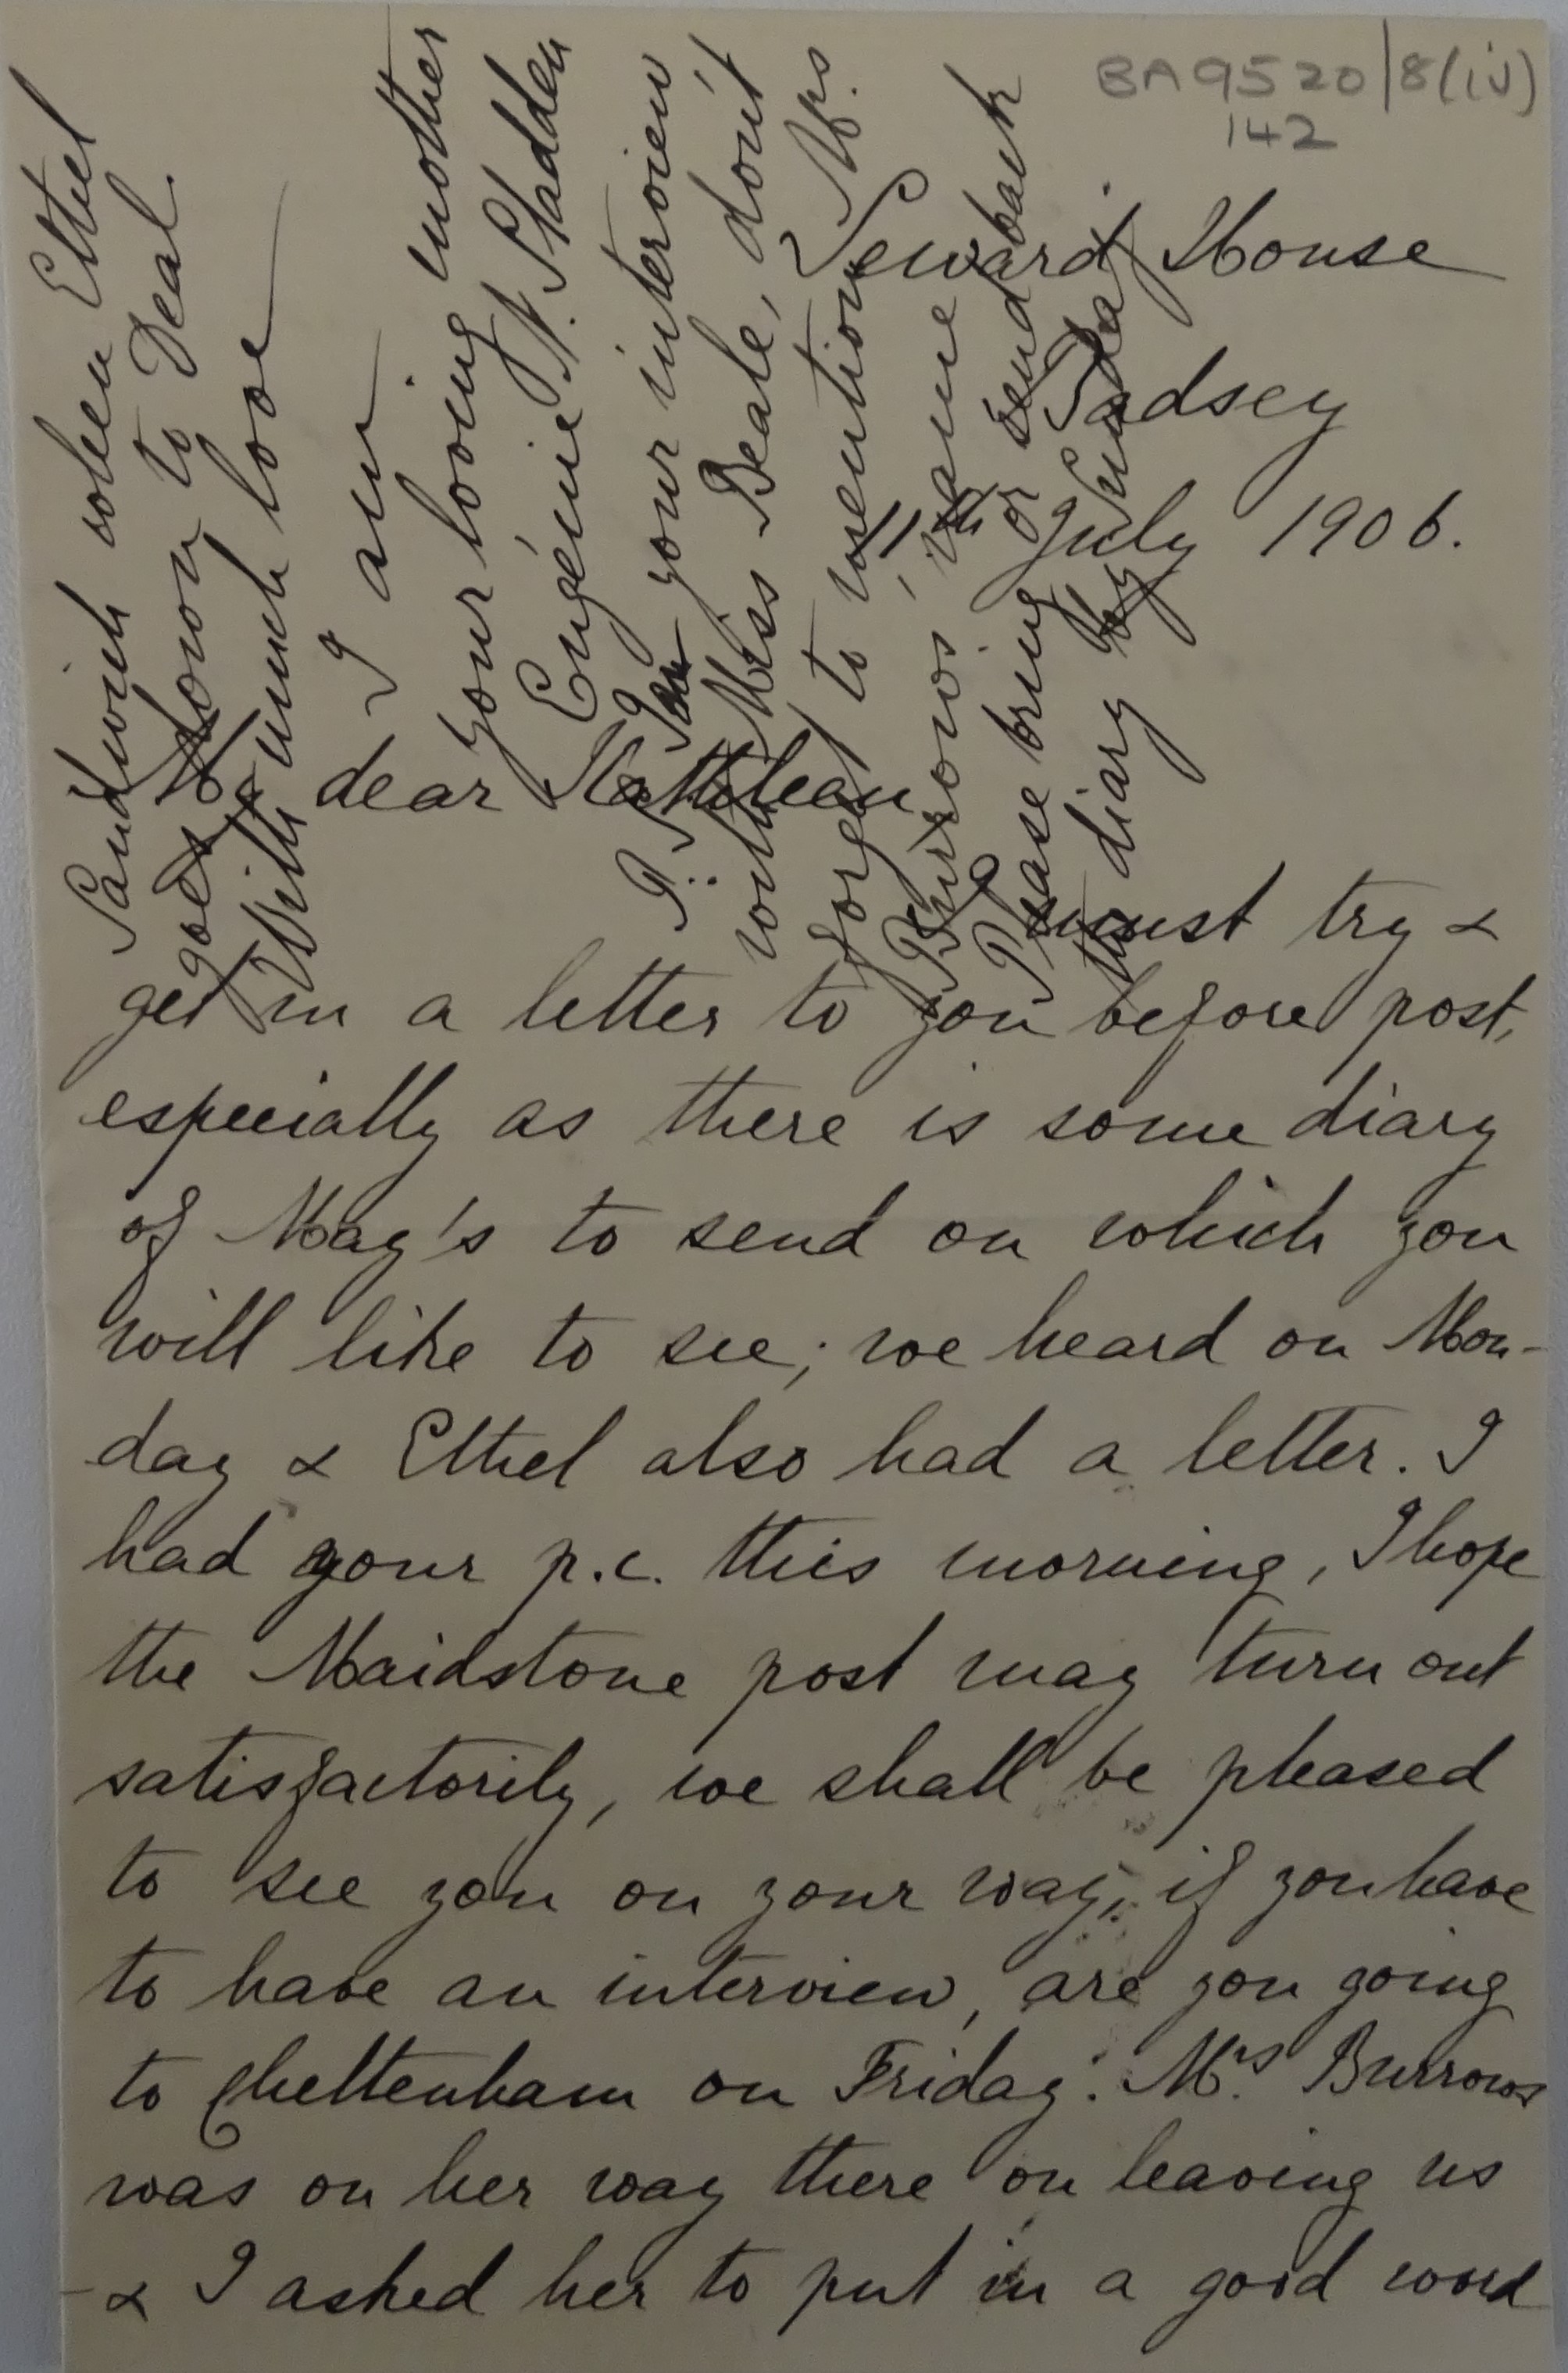 BA9520/8(iv)
142
Seward House
Badsey
11th July 1906.
My dear Kathleen
I must try &
get in a letter to you before post,
especially as there is some diary
of Mag's to send on which you
will like to see; we heard on Mon-
day & Ethel also had a letter. I
had your p.c. this morning, I hope
the Maidstone post may turn out
satisfactorily, we shall be pleased
to see you on your way, if you have
to have an interview, are you going
to Cheltenham on Friday. Mrs Burrows
was on her way there on leaving us
& I asked her to put in a good word
Sandwich when Ethel
goes down to Deal.
With much love
I am
your loving mother
Eugénie N. Sladden
P.S. In your interview
with Miss Beale, don't
forget to mention Mrs.
Burrows' name
Please bring or send back
the diary by Sunday